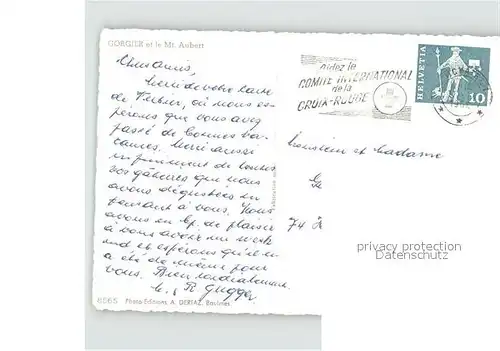 GORGIER et le Mt. Aubert
Aidez le
COMITÉ INTERNATIONAL
de la
CROIX-ROUGE
HELVETIA
10
Chers amis,
Merci de votre carte
de Fribourg, où nous es-
pérons que vous avez
passé de bonnes va-
cances. Merci aussi
infiniment de toutes
vos gâteries que nous
avons dégustées en
pensant à vous. Nous
avons eu bp. de plaisir
à vous avoir un week
end et espérons qu'il en
a été de même pour
vous. Bien cordialement
R. Gugger
Monsieur et Madame
74
privacy protection
Datenschutz
6565 Photo-Editions A. DERIAZ, Baulmes